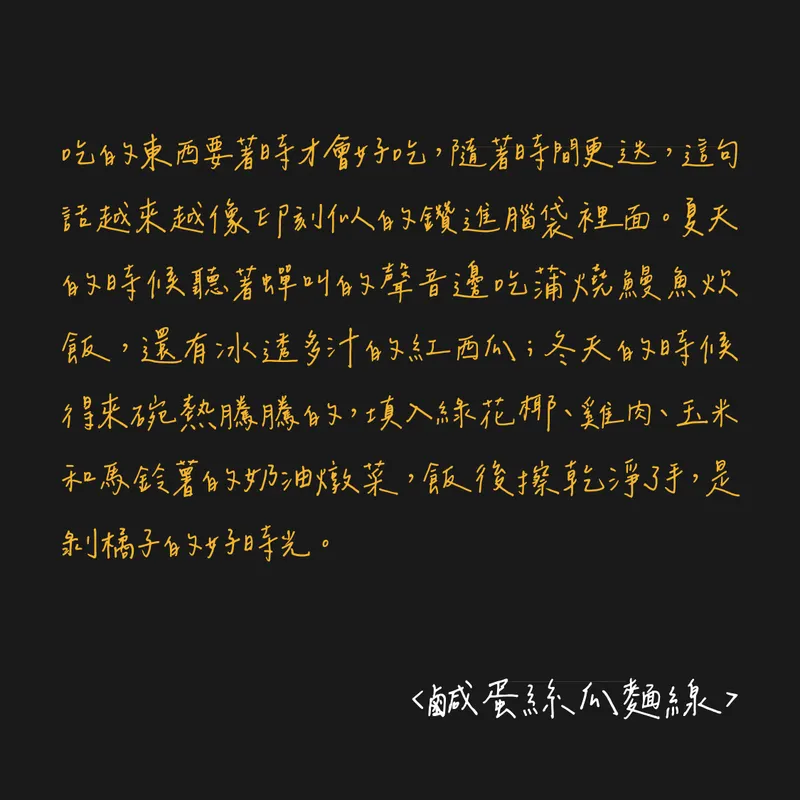 吃的東西要著時才會好吃，隨著時間更迭，這句
話越來越像印刻似的鑽進腦袋裡面。夏天
的時候聽著蟬叫的聲音邊吃蒲燒鰻魚炊
飯，還有冰透多汁的紅西瓜；冬天的時候
得來碗熱騰騰的，填入綠花椰、雞肉、玉米
和馬鈴薯的奶油燉菜，飯後擦乾淨了手，是
剝橘子的好時光。
<鹹蛋絲瓜麵線>